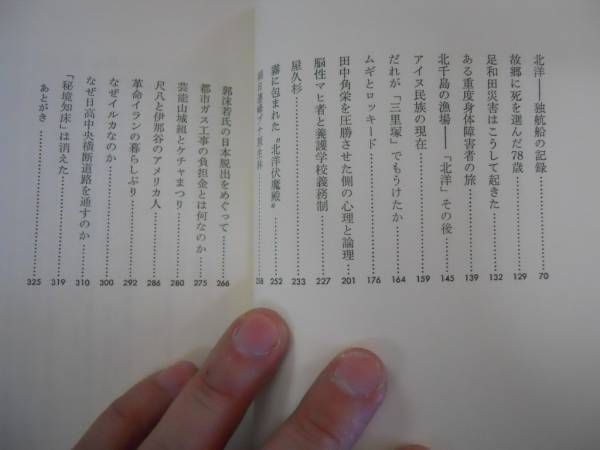 北洋――独航船の記録……70
故郷に死を選んだ78歳……129
足和田災害はこうして起きた……132
ある重度身体障害者の旅……139
北千島の漁場――「北洋」その後……145
アイヌ民族の現在……159
だれが「三里塚」でもうけたか……164
ムギとロッキード……176
田中角栄を圧勝させた側の心理と論理……201
脳性マヒ者と養護学校義務制……227
屋久杉……233
霧に包まれた“北洋伏魔殿”……252
258
郭沫若氏の日本脱出をめぐって……266
都市ガス工事の負担金とは何なのか……275
芸能山城組とケチャまつり……280
尺八と伊那谷のアメリカ人……286
革命イランの暮らしぶり……292
なぜイルカなのか……300
なぜ日高中央横断道路を通すのか……310
「秘境知床」は消えた……319
あとがき……325